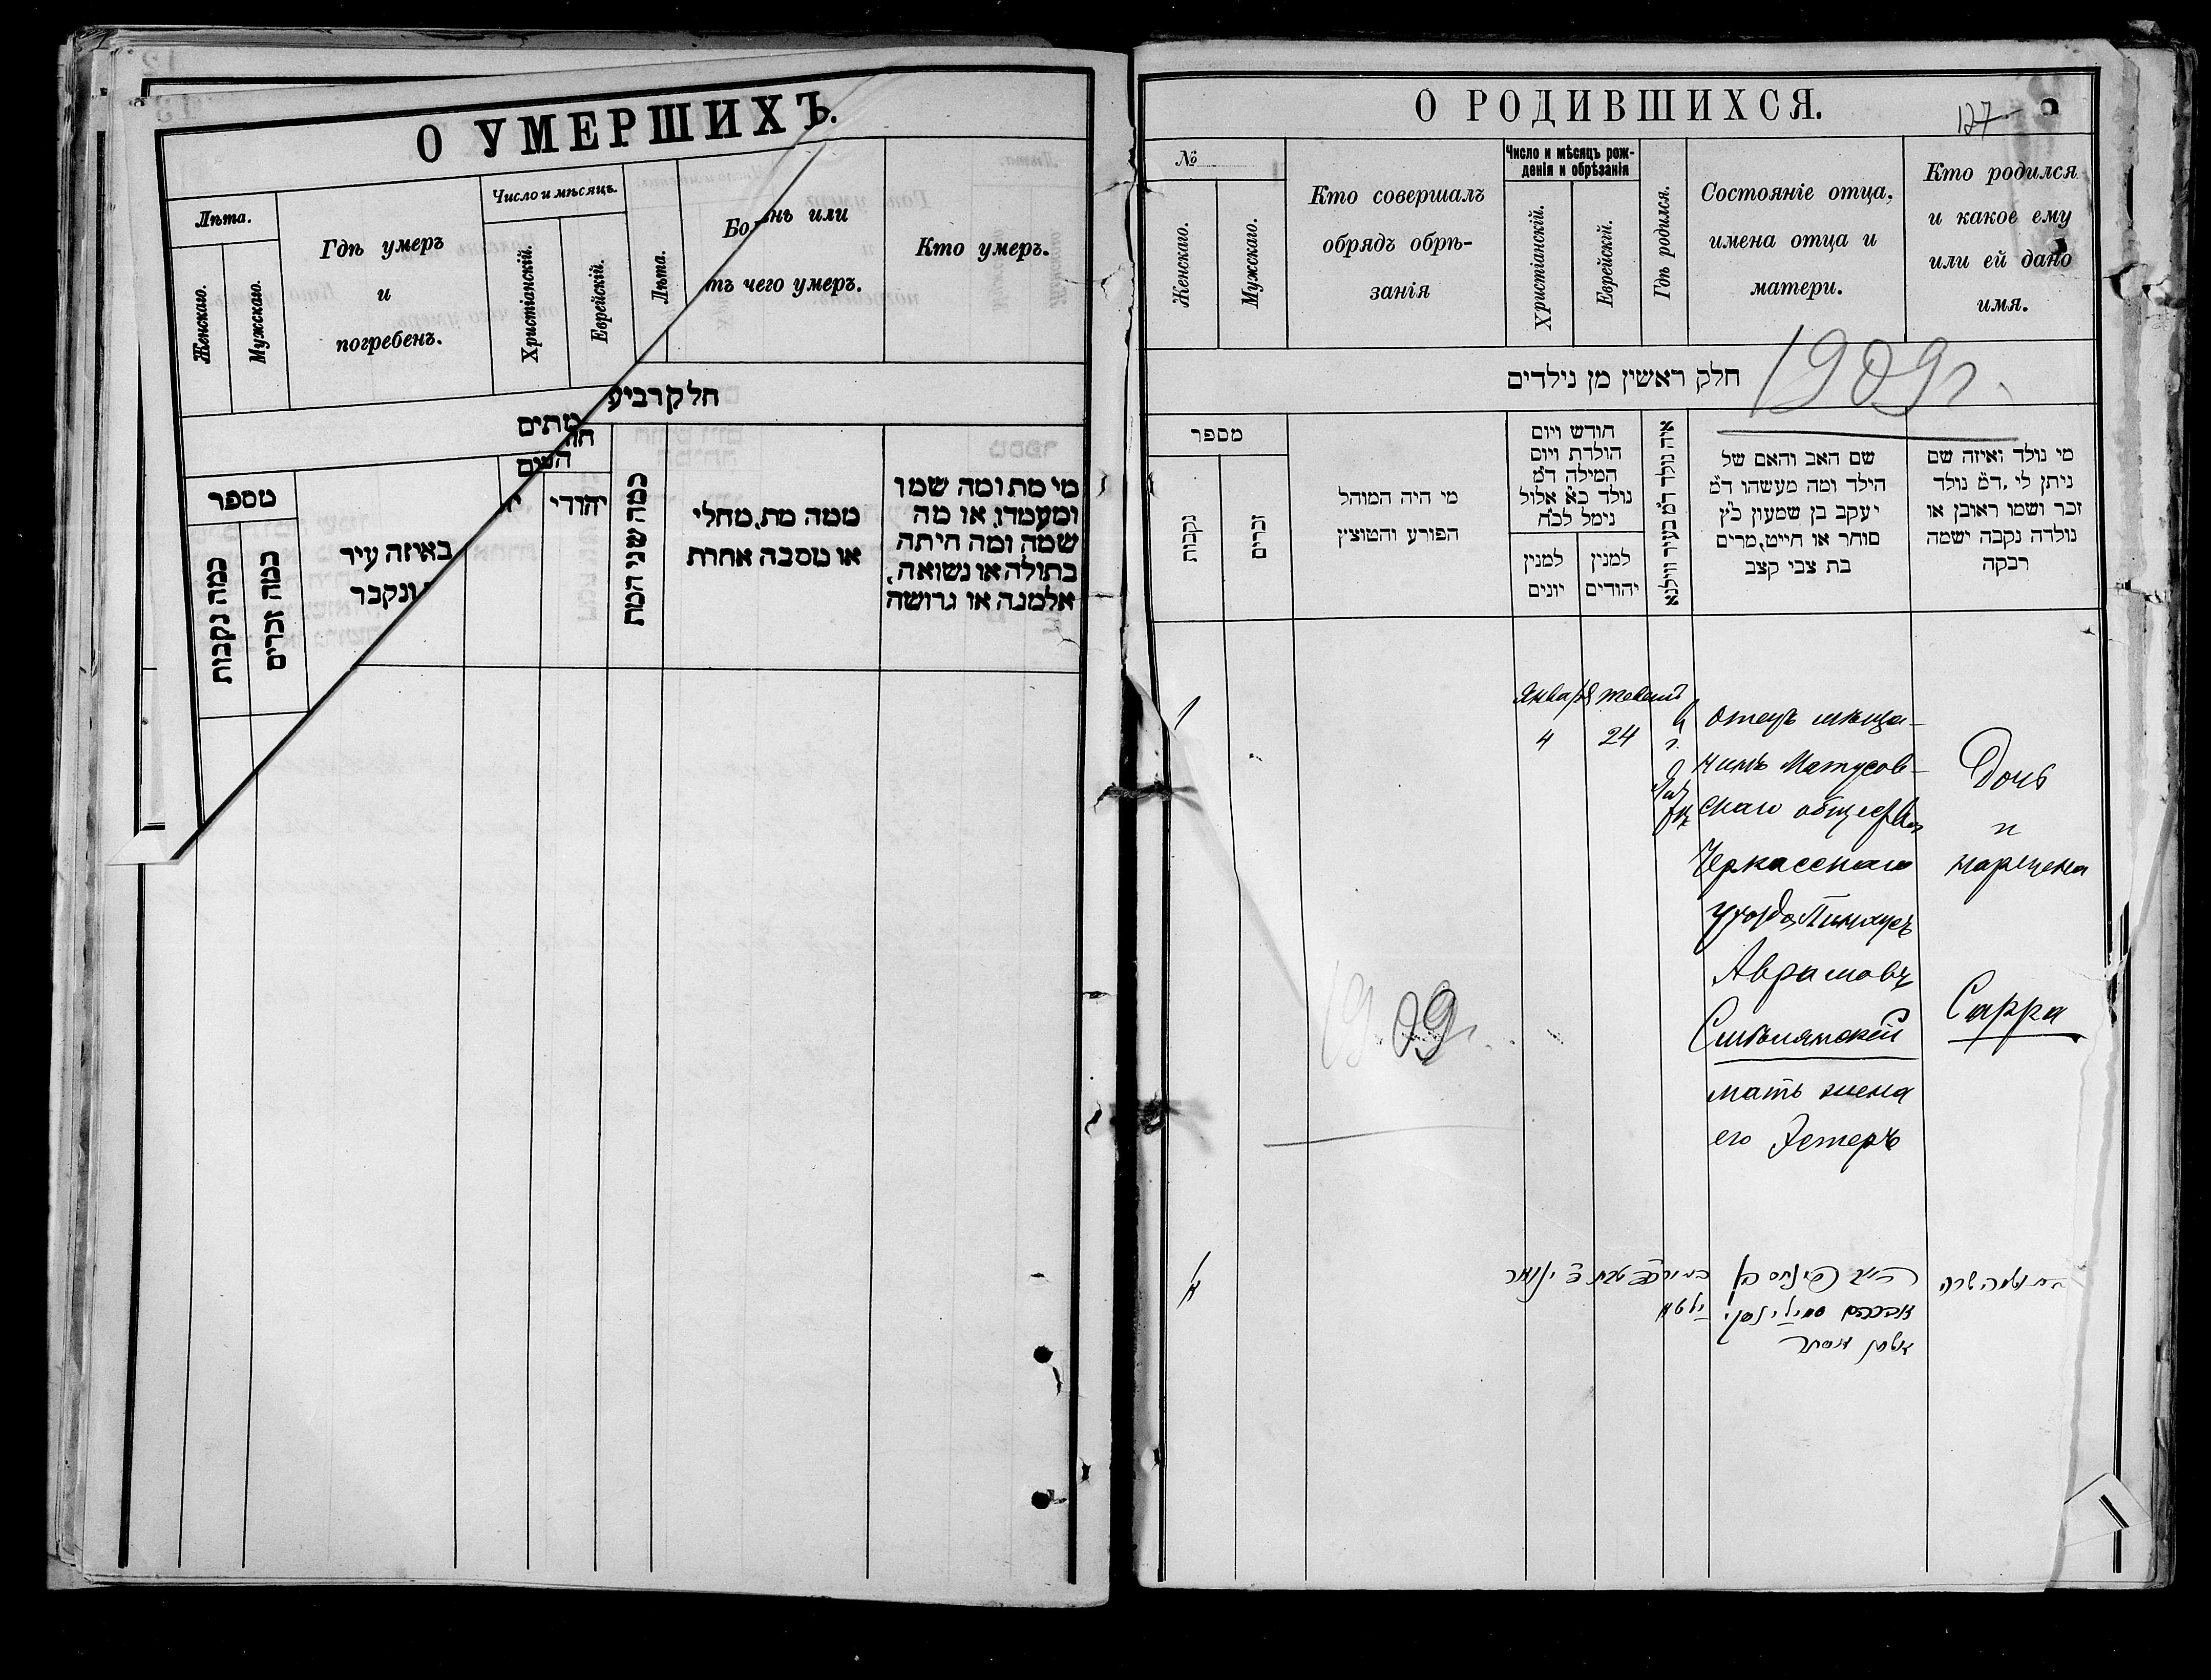 О УМЕРШИХЪ.
Лѣта.
Женскаго.
Мужскаго.
Гдѣ умеръ
и
погребенъ.
Число и мѣсяцъ.
Христіанскій.
Еврейскій.
Лѣта.
нь или
тъ чего умеръ.
Кто умеръ.
חלק רביע
מתים
מספר
כמה נקבות
כמה זכרים
באיזה עיר
ונקבר
יהודי
כמה שני המת
ממה מת, מחלי
או מסבה אחרת
מי מת ומה שמו
ומעמדו, או מה
שמה ומה היתה
בתולה או נשואה,
אלמנה או גרושה
О РОДИВШИХСЯ.
127
№
Женскаго.
Мужскаго.
Кто совершалъ
обрядъ обрѣ-
занія
Число и мѣсяцъ рож-
денія и обрѣзанія
Христіанскій.
Еврейскій.
Гдѣ родился.
Состояніе отца,
имена отца и
матери.
Кто родился
и какое ему
или ей дано
имя.
חלק ראשין מן נילדים
1909 г.
מספר
נקבות
זכרים
מי היה המוהל
הפורע והמוצץ
חודש ויום
הולדת ויום
המילה ד״מ
נולד כ״א אלול
נימל לכ״ח
למנין
יונים
למנין
יהודים
איה נולד ד״מ בעיר ווילנא
שם האב והאם של
הילד ומה מעשהו ד״מ
יעקב בן שמעון כ״ץ
סוחר או חייט, מרים
בת צבי קצב
מי נולד ואיזה שם
ניתן לי, ד״מ נולד
זכר ושמו ראובן או
נולדה נקבה ישמה
רבקה
1
Января
4
24
отецъ мѣща-
нинъ Матусов-
скаго общества
Черкасскаго
уѣзда, Пинхусъ
Аврамовъ
Смолянскій
мать жена
его Эстеръ
Дочь
и
наречена
Сарра
1909 г.
א
פינחס בן
אברהם סמילינסקי
אסתר
ינואר
שרה